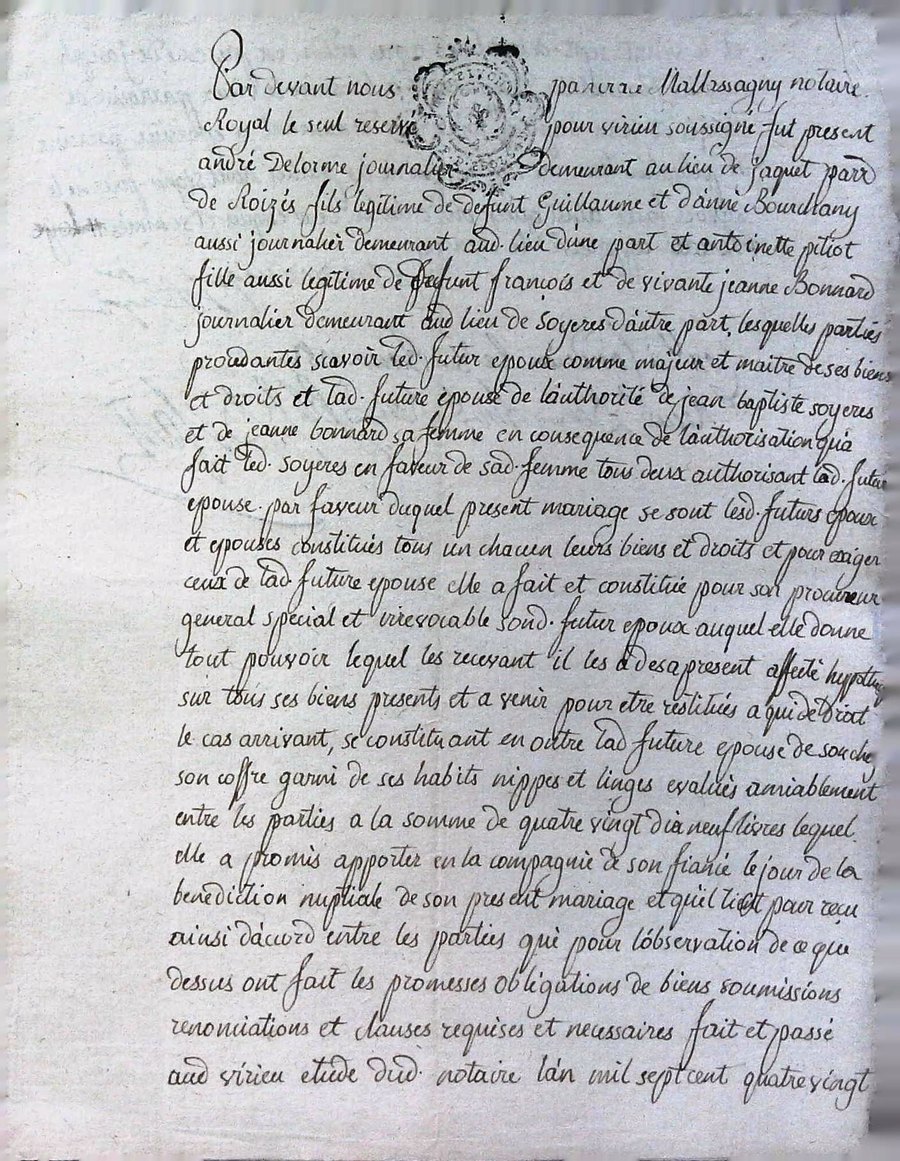 Par devant nous pa
Royal le seul reservé pour virieu soussigné fut present
andré Delorme journalier demeurant au lieu de jaquet parr
de Roizés fils legitime de defunt Guillaume et d'anne Bourchany
aussi journalier demeurant aud. lieu d'une part et antoinette pitiot
fille aussi legitime de defunt francois et de vivante jeanne Bonnard
journalier demeurant aud lieu de soyeres d'autre part, lesquelles parties
procedantes scavoir led. futur epoux comme majeur et maitre de ses biens
et droits et lad. future epouse de l'authorité de jean baptiste soyeres
et de jeanne bonnard sa femme en consequence de l'authorisation qu'a
fait led. soyeres en faveur de sad. femme tous deux authorisant lad. future
epouse. par faveur duquel present mariage se sont lesd. futurs epoux
et epouses constitués tous un chacun leurs biens et droits et pour exiger
ceux de lad. future epouse elle a fait et constitué pour son procureur
general special et irrevocable sond. futur epoux auquel elle donne
tout pouvoir lequel les recevant il les a desapresent affecté hypothe
sur tous ses biens presents et a venir pour etre restitués a qui de droit
le cas arrivant, se constituant en outre lad future epouse de son che
son coffre garni de ses habits nippes et linges evalués amiablement
entre les parties a la somme de quatre vingt dix neuf livres lequel
elle a promis apporter en la compagnie de son fiancé le jour de la
benediction nuptiale de son present mariage et qu'il tient pour reçu
ainsi d'acord entre les parties que pour l'observation de ce que
dessus ont fait les promesses obligations de biens soumissions
renonciations et clauses requises et necessaires fait et passé
aud virieu etude dud. notaire l'an mil sept cent quatre vingt